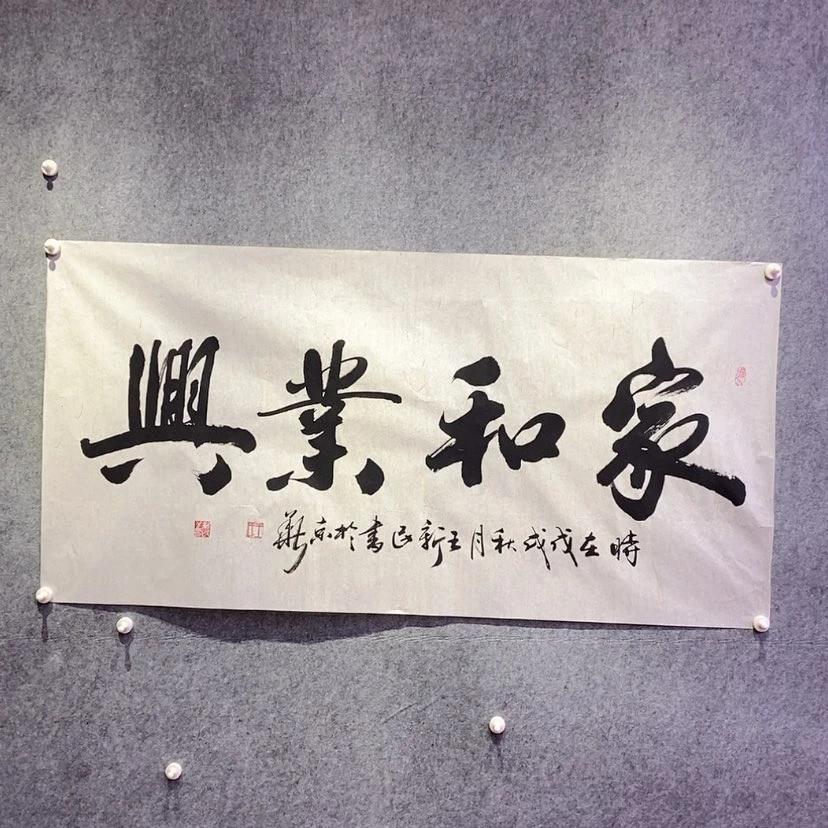 家和業興
時在戊戌秋月王新民書於京華